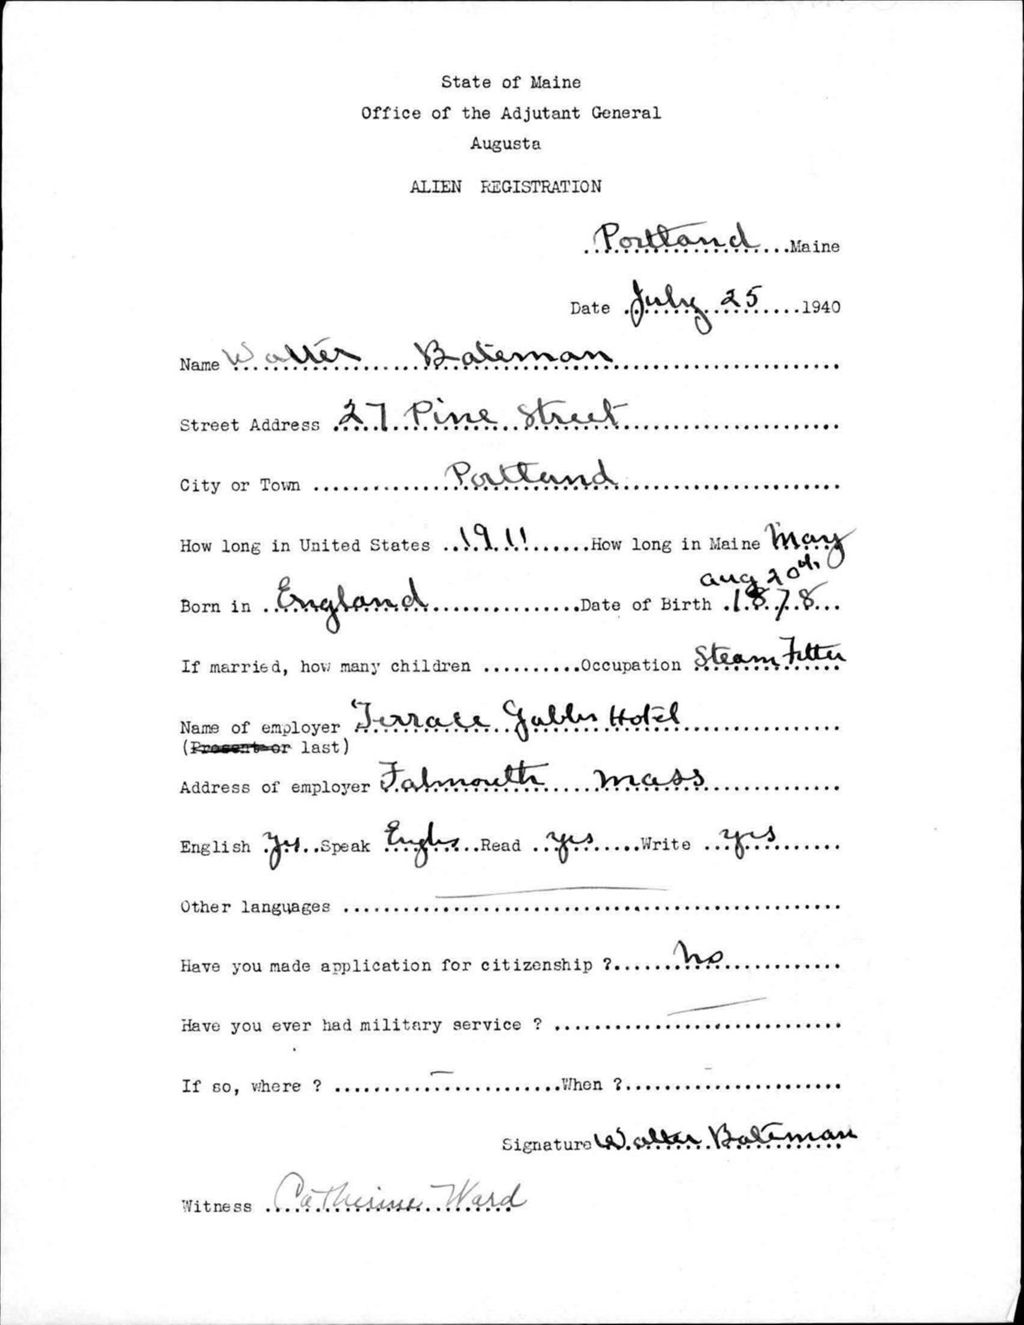 State of Maine
Office of the Adjutant General
Augusta
ALIEN REGISTRATION
Portland Maine
Date July 25 1940
Name Walter Bateman
Street Address 27 Pine Street
City or Town Portland
How long in United States 1911 How long in Maine May
Aug 20th
Born in England Date of Birth 1878
If married, how many children Occupation Steam Fitter
Name of employer Terrace Gables Hotel
(Present or last)
Address of employer Falmouth Mass
English Yes Speak Read yes Write yes
Other languages
Have you made application for citizenship ? No
Have you ever had military service ?
If so, where ? When ?
Signature Walter Bateman
Witness Catherine Ward